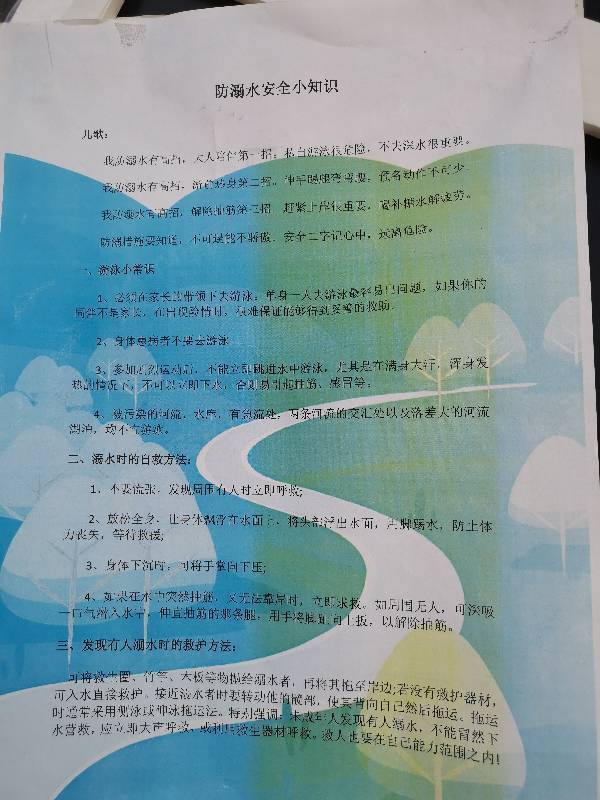 防溺水安全小知识
儿歌：
我防溺水有高招，大人陪伴第一招；私自游泳很危险，不去深水很重要。
我防溺水有高招，游前热身第二招。伸手踢腿弯弯腰，预备动作不可少。
我防溺水有高招，解除抽筋第三招 赶紧上岸很重要，喝补糖水解疲劳。
防溺措施要知道，不可逞能不骄傲。安全二字记心中，远离危险。
一、游泳小常识
1、必须在家长的带领下去游泳。单身一人去游泳最容易出问题，如果你的
同伴不是家长，在出现险情时，很难保证能够得到妥善的救助。
2、身体患病者不要去游泳
3、参加剧烈运动后，不能立即跳进水中游泳，尤其是在满身大汗，浑身发
热的情况下，不可以立即下水，否则易引起抽筋、感冒等。
4、被污染的河流、水库、有急流处，两条河流的交汇处以及落差大的河流
湖泊，均不宜游泳。
二、溺水时的自救方法：
1、不要慌张，发现周围有人时立即呼救；
2、放松全身，让身体飘浮在水面上，将头部浮出水面，用脚踢水，防止体
力丧失，等待救援；
3、身体下沉时，可将手掌向下压；
4、如果在水中突然抽筋，又无法靠岸时，立即求救。如周围无人，可深吸
一口气潜入水中，伸直抽筋的那条腿，用手将脚趾向上扳，以解除抽筋。
三、发现有人溺水时的救护方法：
可将救生圈、竹竿、木板等物抛给溺水者，再将其拖至岸边；若没有救护器材，
可入水直接救护。接近溺水者时要转动他的髋部，使其背向自己然后拖运。拖运
时通常采用侧泳或仰泳拖运法。特别强调：未成年人发现有人溺水，不能冒然下
水营救，应立即大声呼救，或利用救生器材呼救。救人也要在自己能力范围之内！